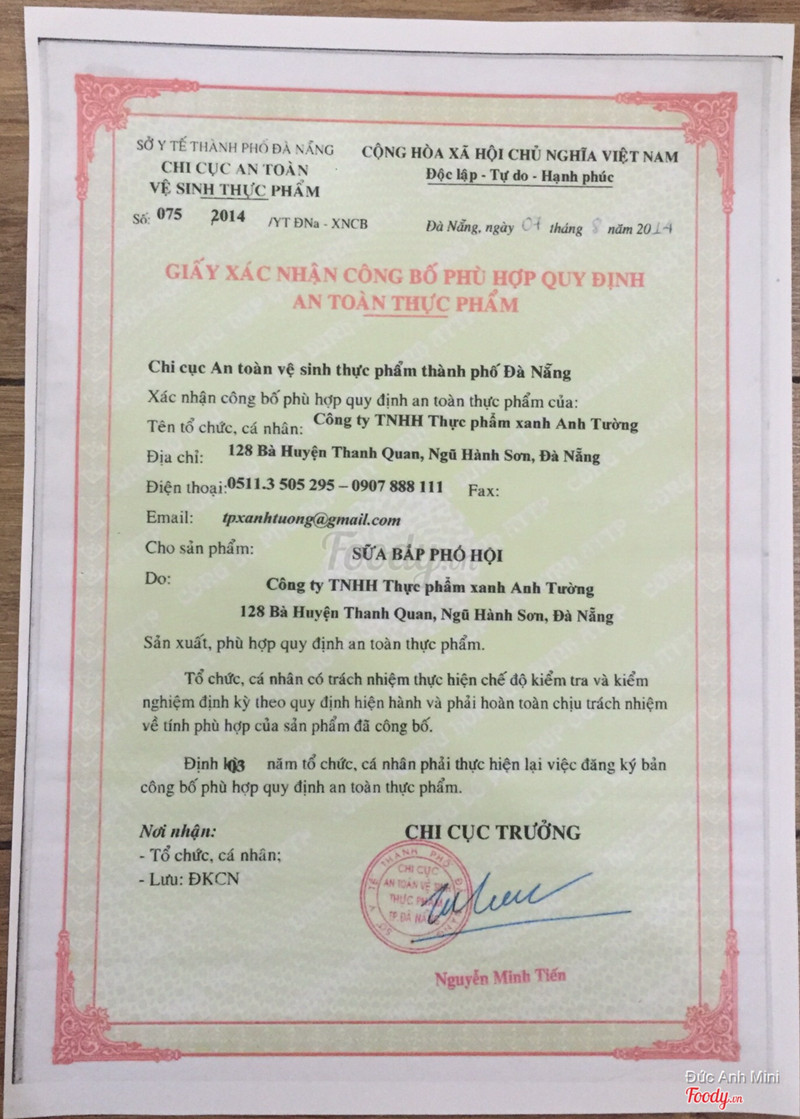 SỞ Y TẾ THÀNH PHỐ ĐÀ NẴNG
CHI CỤC AN TOÀN
VỆ SINH THỰC PHẨM
Số: 075 2014 /YT ĐNa - XNCB
CỘNG HÒA XÃ HỘI CHỦ NGHĨA VIỆT NAM
Độc lập - Tự do - Hạnh phúc
Đà Nẵng, ngày tháng 8 năm 2014
GIẤY XÁC NHẬN CÔNG BỐ PHÙ HỢP QUY ĐỊNH
AN TOÀN THỰC PHẨM
Chi cục An toàn vệ sinh thực phẩm thành phố Đà Nẵng
Xác nhận công bố phù hợp quy định an toàn thực phẩm của:
Tên tổ chức, cá nhân: Công ty TNHH Thực phẩm xanh Anh Tường
Địa chỉ: 128 Bà Huyện Thanh Quan, Ngũ Hành Sơn, Đà Nẵng
Điện thoại:0511.3 505 295 – 0907 888 111 Fax:
Email: tpxanhtuong@gmail.com
Cho sản phẩm: SỮA BẮP PHỐ HỘI
Do: Công ty TNHH Thực phẩm xanh Anh Tường
128 Bà Huyện Thanh Quan, Ngũ Hành Sơn, Đà Nẵng
Sản xuất, phù hợp quy định an toàn thực phẩm.
Tổ chức, cá nhân có trách nhiệm thực hiện chế độ kiểm tra và kiểm
nghiệm định kỳ theo quy định hiện hành và phải hoàn toàn chịu trách nhiệm
về tính phù hợp của sản phẩm đã công bố.
Định 03 năm tổ chức, cá nhân phải thực hiện lại việc đăng ký bản
công bố phù hợp quy định an toàn thực phẩm.
Nơi nhận:
- Tổ chức, cá nhân;
- Lưu: ĐKCN
CHI CỤC TRƯỞNG
CHI CỤC
AN TOÀN VỆ SINH
THỰC PHẨM
TP ĐÀ NẴNG
Nguyễn Minh Tiến
Foody.vn
Đức Anh Mini
Foody.vn